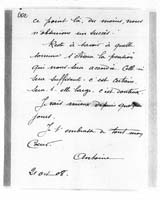 ce point là, du moins, nous
n'obtenions un succès.
Reste à savoir à quelle
somme s'élèvera la pension
qui nous sera accordée. Celle-ci
sera suffisante, c'est certain,
sera-t-elle large, c'est douteux.
Je vais mieux depuis quelques
jours.
Je t'embrasse de tout mon
cœur.
Antoine
21 oct 08.